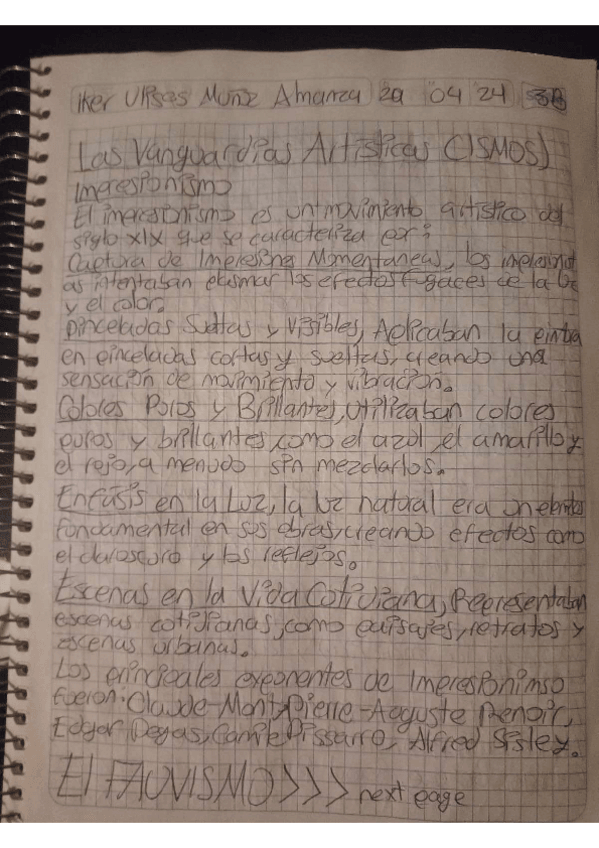 Iker Ulises Muñoz Almanza 29 04 24 3B
Las Vanguardias Artisticas (ISMOS)
Imepresionismo
El imepresionismo es un movimiento artistico del
siglo XIX que se caracteriza por:
Captura de Impresiones Momentaneas, los impresionist
as intentaban plasmar los efectos fugaces de la luz
y el color.
Pinceladas Sueltas y Visibles, Aplicaban la pintura
en pinceladas cortas y sueltas, creando una
sensación de movimiento y vibración.
Colores Puros y Brillantes, Utilizaban colores
puros y brillantes, como el azul, el amarillo y
el rojo, a menudo sin mezclarlos.
Enfasis en la Luz, la luz natural era un elemento
fundamental en sus obras, creando efectos como
el claroscuro y los reflejos.
Escenas en la Vida Cotidiana, Representaban
escenas cotidianas, como paisajes, retratos y
escenas urbanas.
Los principales exponentes de Imepresionimso
fueron: Claude-Mont, Pierre-Auguste Renoir,
Edgar Degas, Camile Pissarro, Alfred Sisley.
El FAUVISMO >>> next page